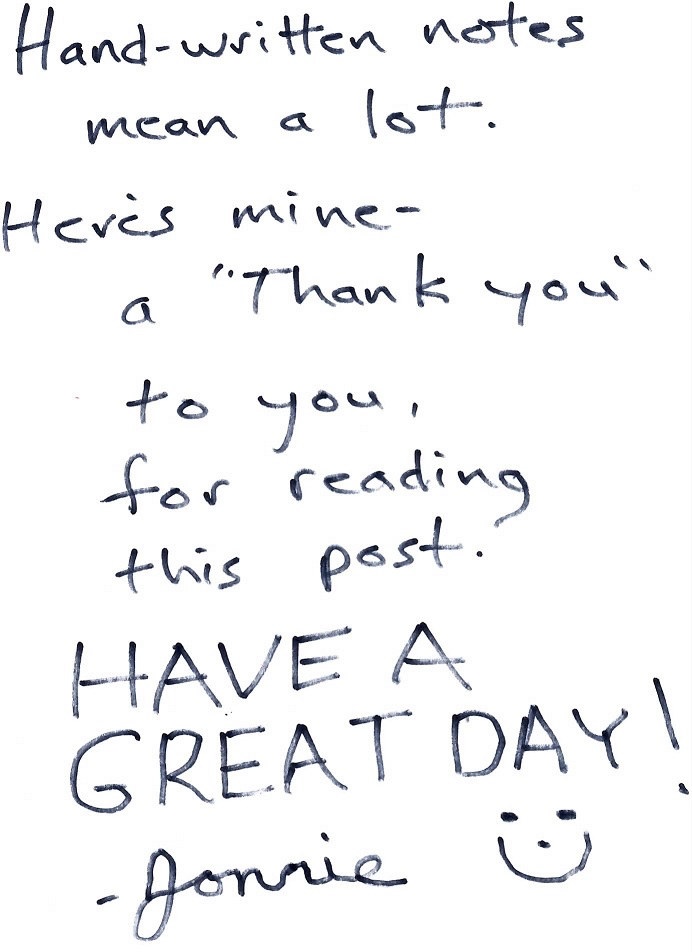 Hand-written notes
mean a lot.
Here's mine-
a "Thank you"
to you,
for reading
this post.
HAVE A
GREAT DAY!
-Jonnie